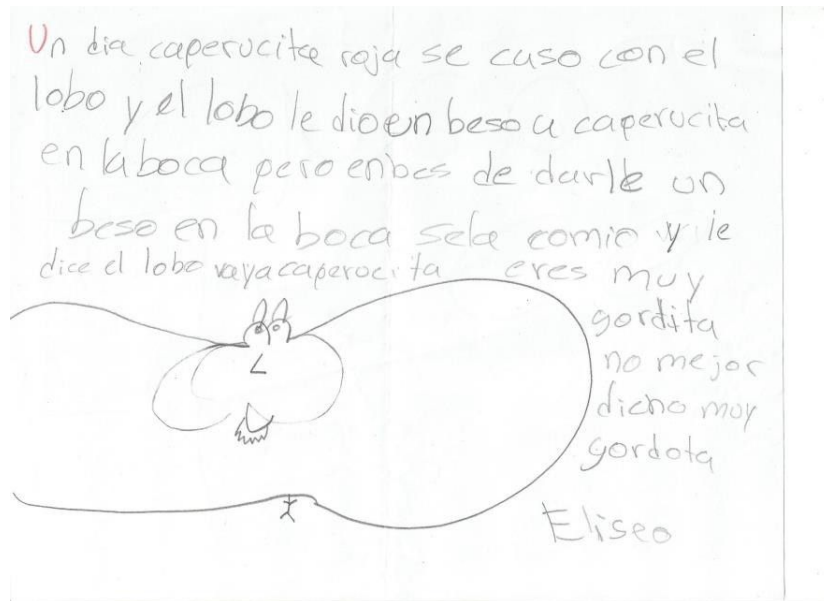 Un dia caperucita roja se caso con el
lobo y el lobo le dio en beso a caperucita
en la boca pero enbes de darle un
beso en la boca sela comio y le
dice el lobo vaya caperocita eres muy
gordita
no mejor
dicho muy
gordota
Eliseo